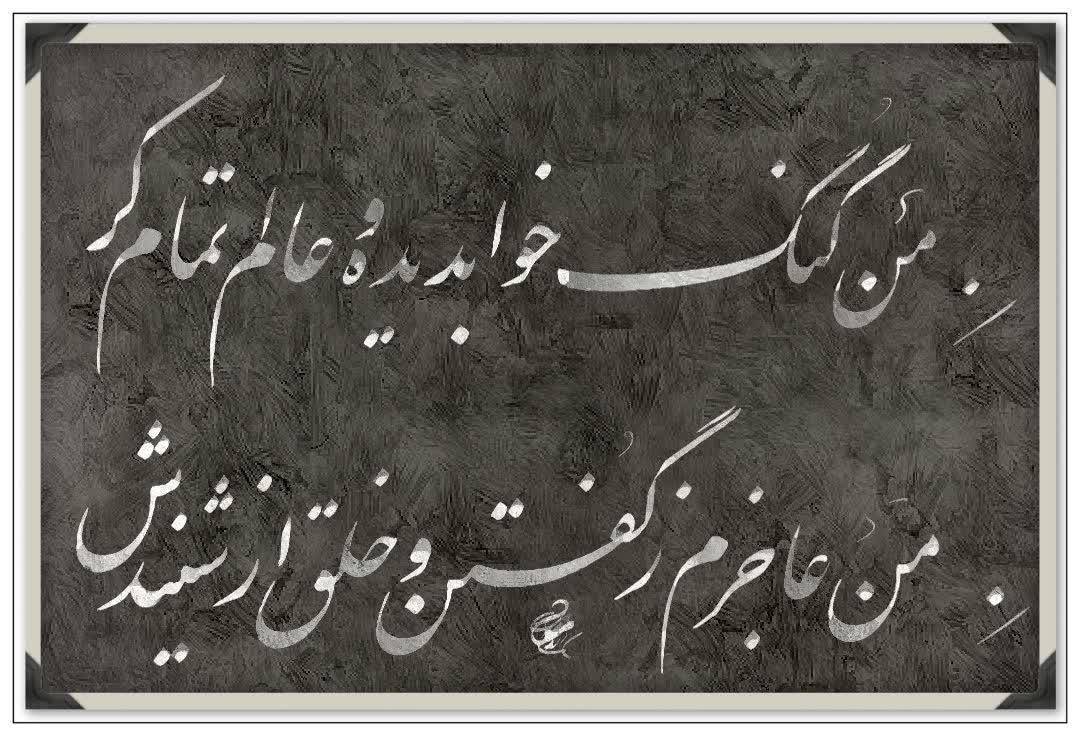 من گنگ خوابدیده و عالم تمام کر
من عاجزم ز گفتن و خلق از شنیدنش